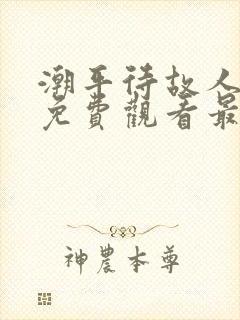 潮平待故人
免費觀看最
神農本尊